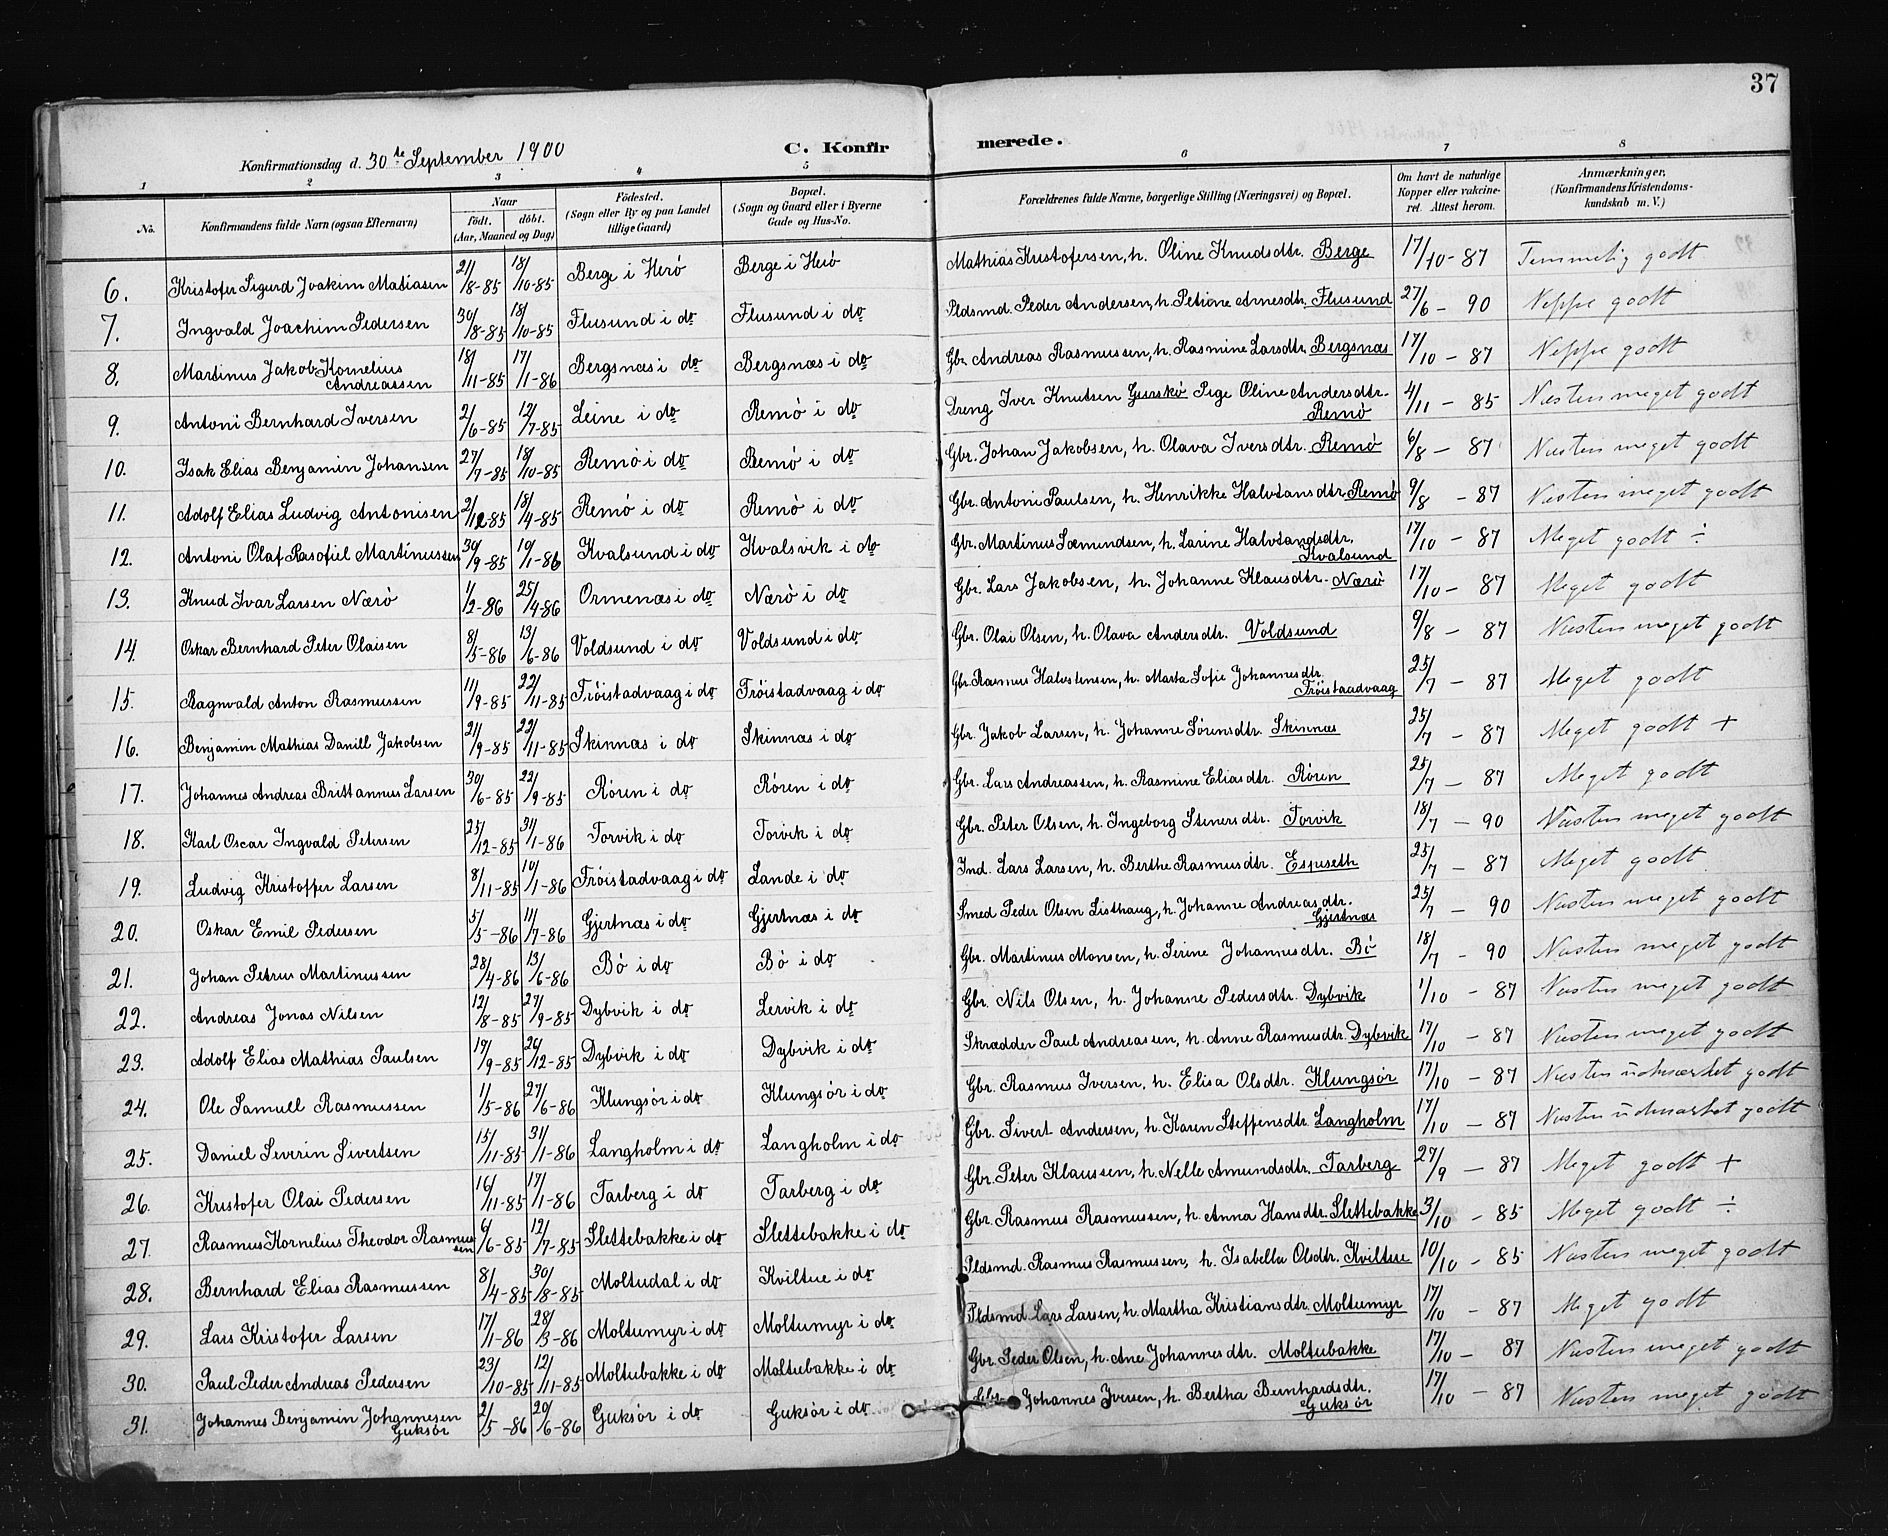 37
Konfirmationsdag d. 30 te September 1900
C. Konfirmerede.
1 2 3 4 5 6 7 8
No. Konfirmandens fulde Navn (ogsaa Efternavn) Naar født. døbt. (Aar, Maaned og Dag) Fødested. (Sogn eller By og paa Landet tillige Gaard) Bopæl. (Sogn og Gaard eller i Byerne Gade og Hus-No. Forældrenes fulde Navne, borgerlige Stilling (Næringsvei) og Bopæl. Om havt de naturlige Kopper eller vakcineret. Attest herom. Anmærkninger. (Konfirmandens Kristendomskundskab m. V.)
6. Kristofer Sigurd Joakim Matiasen 21/8-85 18/10-85 Berge i Herö Berge i Herö Mathias Kristofersen, h. Oline Knudsdtr. Berge 17/10-87 Temmelig godt
7. Ingvald Joachim Pedersen 30/8-85 18/10-85 Flusund i do Flusund i do Pldsmd. Peder Andersen, h. Petiane Arnesdtr. Flusund 27/6-90 Neppe godt
8. Martinus Jakob Kornelius Andreassen 18/11-85 17/1-86 Bergsnæs i do Bergsnæs i do Gbr. Andreas Rasmussen, h. Rasmine Larsdtr. Bergsnæs 17/10-87 Neppe godt
9. Antoni Bernhard Iversen 2/6-85 12/7-85 Leine i do Remö i do Dreng Iver Knutsen Gurskö Pige Oline Andersdtr. Remö 4/11-85 Næsten meget godt
10. Isak Elias Benjamin Johansen 27/7-85 18/10-85 Remö i do Remö i do Gbr. Johan Jakobsen, h. Olava Iversdtr. Remö 6/8-87 Næsten meget godt
11. Adolf Elias Ludvig Antonisen 2/12-85 18/4-85 Remö i do Remö i do Gbr. Antoni Paulsen, h. Henrikke Halvstansdtr. Remö 9/8-87 Næsten meget godt
12. Antoni Olaf Rasofiel Martinussen 30/9-85 10/1-86 Kvalsund i do Kvalsvik i do Gbr. Martinus Sæmundsen, h. Larine Halvstandsdtr. Kvalsund 17/10-87 Meget godt ÷
13. Knud Ivar Larsen Nærö 1/2-86 25/4-86 Ormenæs i do Nærö i do Gbr. Lars Jakobsen, h. Johanne Klausdtr. Nærö 17/10-87 Meget godt
14. Oskar Bernhard Peter Olaisen 8/5-86 13/6-86 Voldsund i do Voldsund i do Gbr. Olai Olsen, h. Olava Andersdtr. Voldsund 9/8-87 Næsten meget godt
15. Ragnvald Anton Rasmussen 11/9-85 22/11-85 Tröistadvaag i do Tröistadvaag i do Gbr. Rasmus Halvstensen, h. Marta Sofie Johannesdtr. Tröistaadvaag 25/7-87 Meget godt
16. Benjamin Mathias Daniel Jakobsen 21/9-85 22/11-85 Skinnæs i do Skinnæs i do Gbr. Jakob Larsen, h. Johanne Sörensdtr. Skinnæs 25/7-87 Meget godt +
17. Johannes Andreas Brittannus Larsen 30/6-85 22/9-85 Rören i do Rören i do Gbr. Lars Andreassen, h. Rasmine Eliasdtr. Rören 25/7-87 Meget godt
18. Karl Oscar Ingvald Petersen 25/12-85 31/1-86 Torvik i do Torvik i do Gbr. Peter Olsen, h. Ingeborg Stenersdtr. Torvik 18/7-90 Næsten meget godt
19. Ludvig Kristoffer Larsen 8/11-85 10/1-86 Tröistadvaag i do Lande i do Ind. Lars Larsen, h. Berthe Rasmusdtr. Espeseth 25/7-87 Meget godt
20. Oskar Emil Pedersen 5/5-86 11/7-86 Gjertnæs i do Gjertnæs i do Smed Peder Olsen Listhaug, h. Johanne Andreasdtr. Gjertnæs 25/7-90 Næsten meget godt
21. Johan Petrus Martinussen 28/4-86 13/6-86 Bö i do Bö i do Gbr. Martinus Monsen, h. Serine Johannesdtr. Bö 18/7-90 Næsten meget godt
22. Andreas Jonas Nilsen 12/8-85 27/9-85 Dybvik i do Lervik i do Gbr. Nils Olsen, h. Johanne Pedersdtr. Dybvik 1/10-87 Næsten meget godt
23. Adolf Elias Mathias Paulsen 19/9-85 26/12-85 Dybvik i do Dybvik i do Skrædder Paul Andreassen, h. Anne Rasmusdtr. Dybvik 17/10-87 Næsten meget godt
24. Ole Samuel Rasmussen 1/5-86 27/6-86 Klungsör i do Klungsör i do Gbr. Rasmus Iversen, h. Elisa Olsdtr. Klungsör 17/10-87 Næsten udmærket godt
25. Daniel Severin Sivertsen 15/11-85 31/1-86 Langholm i do Langholm i do Gbr. Sivert Andersen, h. Karen Steffensdtr. Langholm 17/10-87 Næsten udmærket godt
26. Kristofer Olai Pedersen 16/11-85 17/1-86 Tarberg i do Tarberg i do Gbr. Peter Klaussen, h. Nelle Amundsdtr. Tarberg 27/9-87 Meget godt +
27. Rasmus Kornelius Theodor Rasmussen 6/6-85 12/7-85 Slettebakke i do Slettebakke i do Gbr. Rasmus Rasmussen, h. Anna Hansdtr. Slettebakke 3/10-85 Meget godt ÷
28. Bernhard Elias Rasmussen 8/4-85 30/8-85 Moltudal i do Kviltue i do Pldsmd. Rasmus Rasmussen, h. Isabella Olsdtr. Kviltue 10/10-85 Næsten meget godt
29. Lars Kristofer Larsen 17/1-86 28/3-86 Moltumyr i do Moltumyr i do Pldsmd Lars Larsen, h. Martha Kristiansdtr. Moltumyr 17/10-87 Meget godt
30. Paul Peder Andreas Pedersen 23/10-85 12/11-85 Moltubakke i do Moltubakke i do Gbr Peder Olsen, h. Ane Johannesdtr. Moltubakke 17/10-87 Næsten meget godt
31. Johannes Benjamin Johannesen Guksör 2/5-86 20/6-86 Guksör i do Guksör i do Gbr. Johannes Iversen, h. Bertha Bernhardsdtr. Guksör 17/10-87 Næsten meget godt